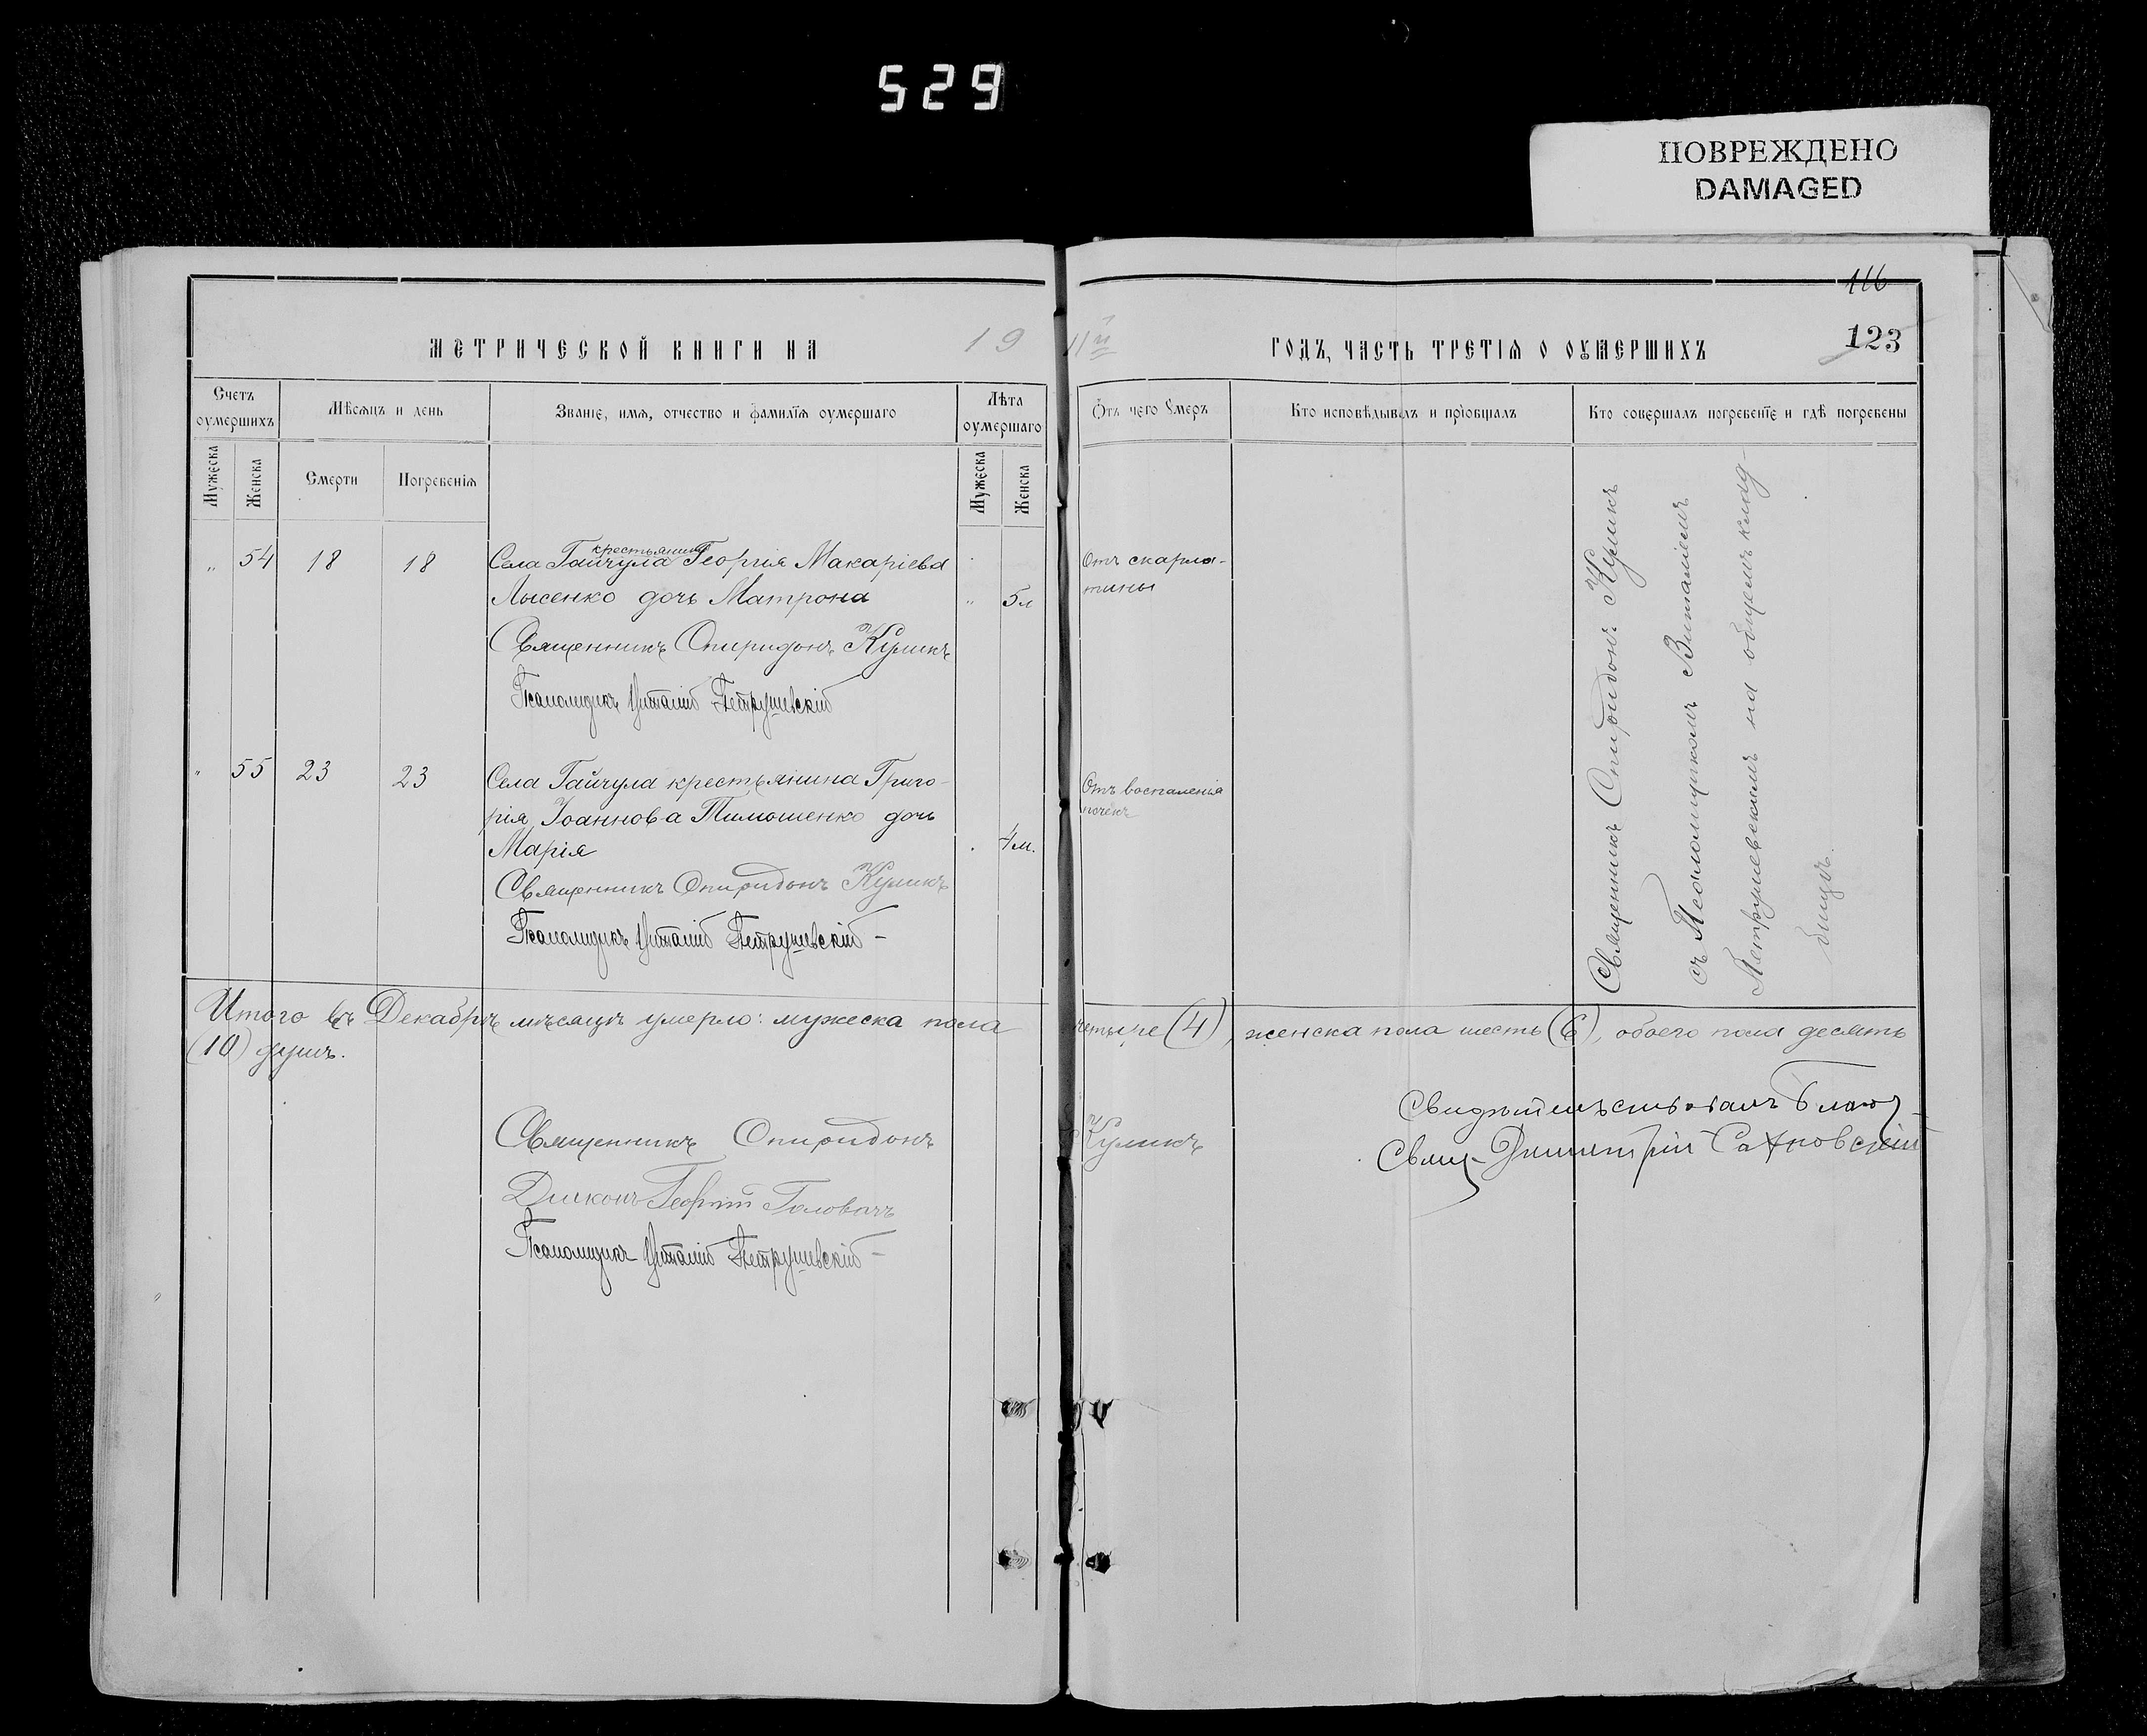 529
ПОВРЕЖДЕНО
DAMAGED
116
МЕТРИЧЕСКОЙ КНИГИ НА 1911й ГОДЪ, ЧАСТЬ ТРЕТІѦ О ОУМЕРШИХЪ
123
Счетъ оумершихъ
Мѣсѧцъ и день
Званіе, имѧ, отчество и фамиліѧ оумершаго
Лѣта оумершаго
Отъ чего умеръ
Кто исповѣдывалъ и пріобщалъ
Кто совершалъ погребеніе и гдѣ погребены
Мужеска
Женска
Смерти
Погребеніѧ
Мужеска
Женска
„ 54 18 18 Села Гайчула крестьянина Георгія Макаріева
Лысенко дочь Матрона „ 5л
Отъ скарла-
тины
Священникъ Спиридонъ Куликъ
Псаломщикъ Виталій Петрушевскій
„ 55 23 23 Села Гайчула крестьянина Григо-
рія Іоаннова Тимошенко дочь
Марія 4м.
Отъ воспаленія
почекъ
Священникъ Спиридонъ Куликъ
Псаломщикъ Виталій Петрушевскій
Священникъ Спиридонъ Куликъ
съ Псаломщикомъ Виталіемъ
Петрушевскимъ на общемъ клад-
бищѣ.
Итого въ Декабрѣ мѣсяцѣ умерло: мужеска пола четыре (4), женска пола шесть (6), обоего пола десять
(10) душъ.
Священникъ Спиридонъ Куликъ
Діаконъ Георгій Головачъ
Псаломщикъ Виталій Петрушевскій
Свидѣтельствовалъ Благоч.
Свящ. Димитрій Сахновскій